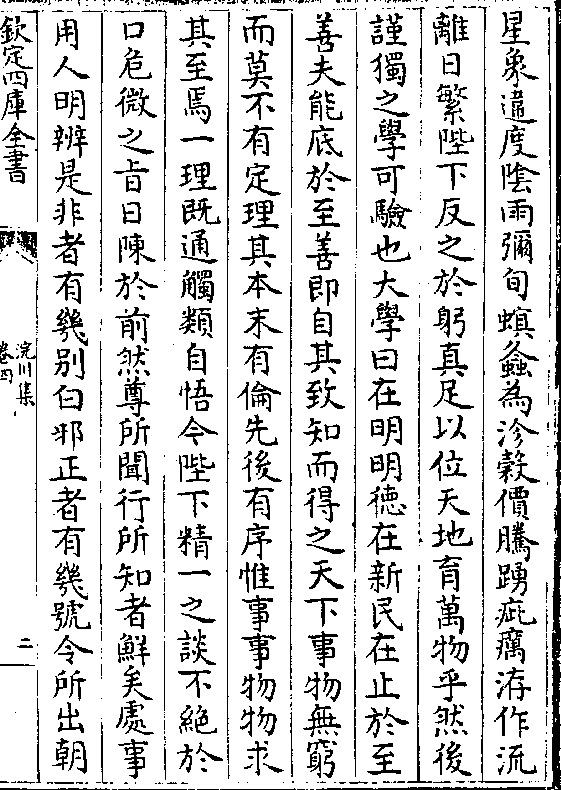 星象違度陰雨彌旬螟螽為沴穀價騰踴疵癘洊作流
離日繁陛下反之於躬真足以位天地育萬物乎然後
謹獨之學可驗也大學曰在明明徳在新民在止於至
善夫能底於至善即自其致知而得之天下事物無窮
而莫不有定理其本末有倫先後有序惟事事物物求
其至焉一理既通觸類自悟今陛下精一之談不絶於
口危微之㫖日陳於前然尊所聞行所知者鮮矣處事
用人明辨是非者有幾别白邪正者有幾號令所出朝
欽定四庫全書
浣川集
卷四
二